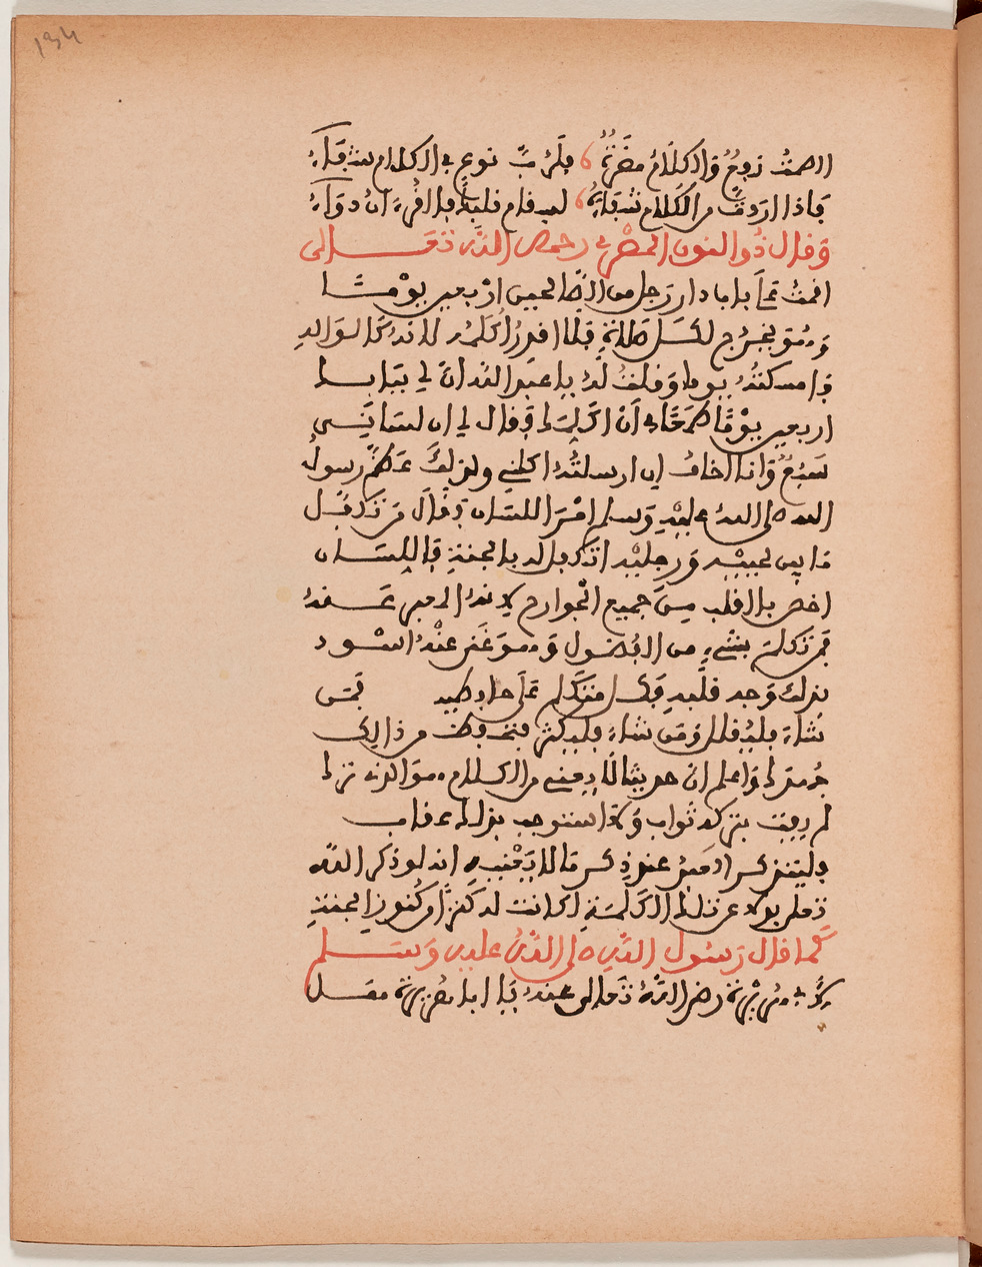 ١٣٤
الصمت نفع والكلام مضرة فلرب نوع في الكلام شفاء
فاذا اردت من الكلام شفاية لسقام قلبك فالقرءان دواء
وقال ذو النون المصري رحمه الله تعالى
اقمت على باب دار رجل من الصالحين اربعين يوما
وهو يخرج لكل صلاة فلا اقدر اكلمه لانه كالواله
فامسكته يوما وقلت له يا عبد الله انا لي ببابك
اربعين يوما طمعا في ان اكلمك فقال لي ان لساني
سبع وانا اخاف ان ارسلته اكلني ولذلك عظم رسول
الله صلى الله عليه وسلم امر اللسان فقال من تكفل
ما بين لحييه ورجليه اتكفل له بالجنة فاللسان
اخص بالقلب من جميع الجوارح لانه المعبر عنه
فمن تكلم بشيء من الفضول وهو غني عنه اسود
بذلك وجه قلبه فكل متكلم على حاله فمن
شاء فليقلل ومن شاء فليكثر فتحفظ من ذالك
جهدك واعلم ان حد ما لا يعني من الكلام هو الذي
لم يفت بتركه ثواب ولا استوجب بذلك عقاب
وليتذكر العبد عند ذكر ما لا يعنيه انه لو ذكر الله
تعلى بدلا عن تلك الكلمة لكانت له كنزا من كنوز الجنة
كما قال رسول الله صلى الله عليه وسلم
لابي هريرة رضي الله تعالى عنه يا ابا هريرة هل